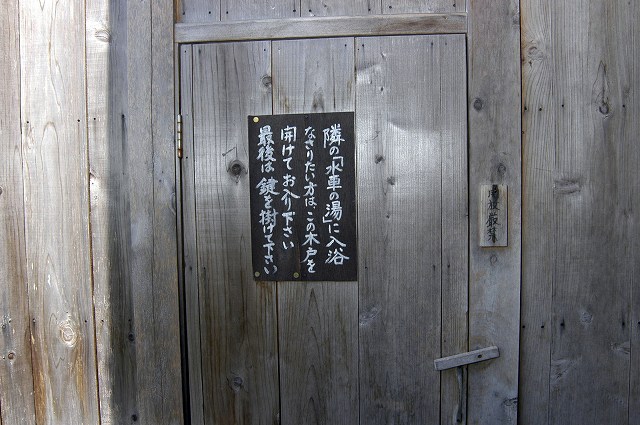 隣の「水車の湯」に入浴
なさりたい方は、この木戸を
開けてお入り下さい
最後は鍵を掛けて下さい